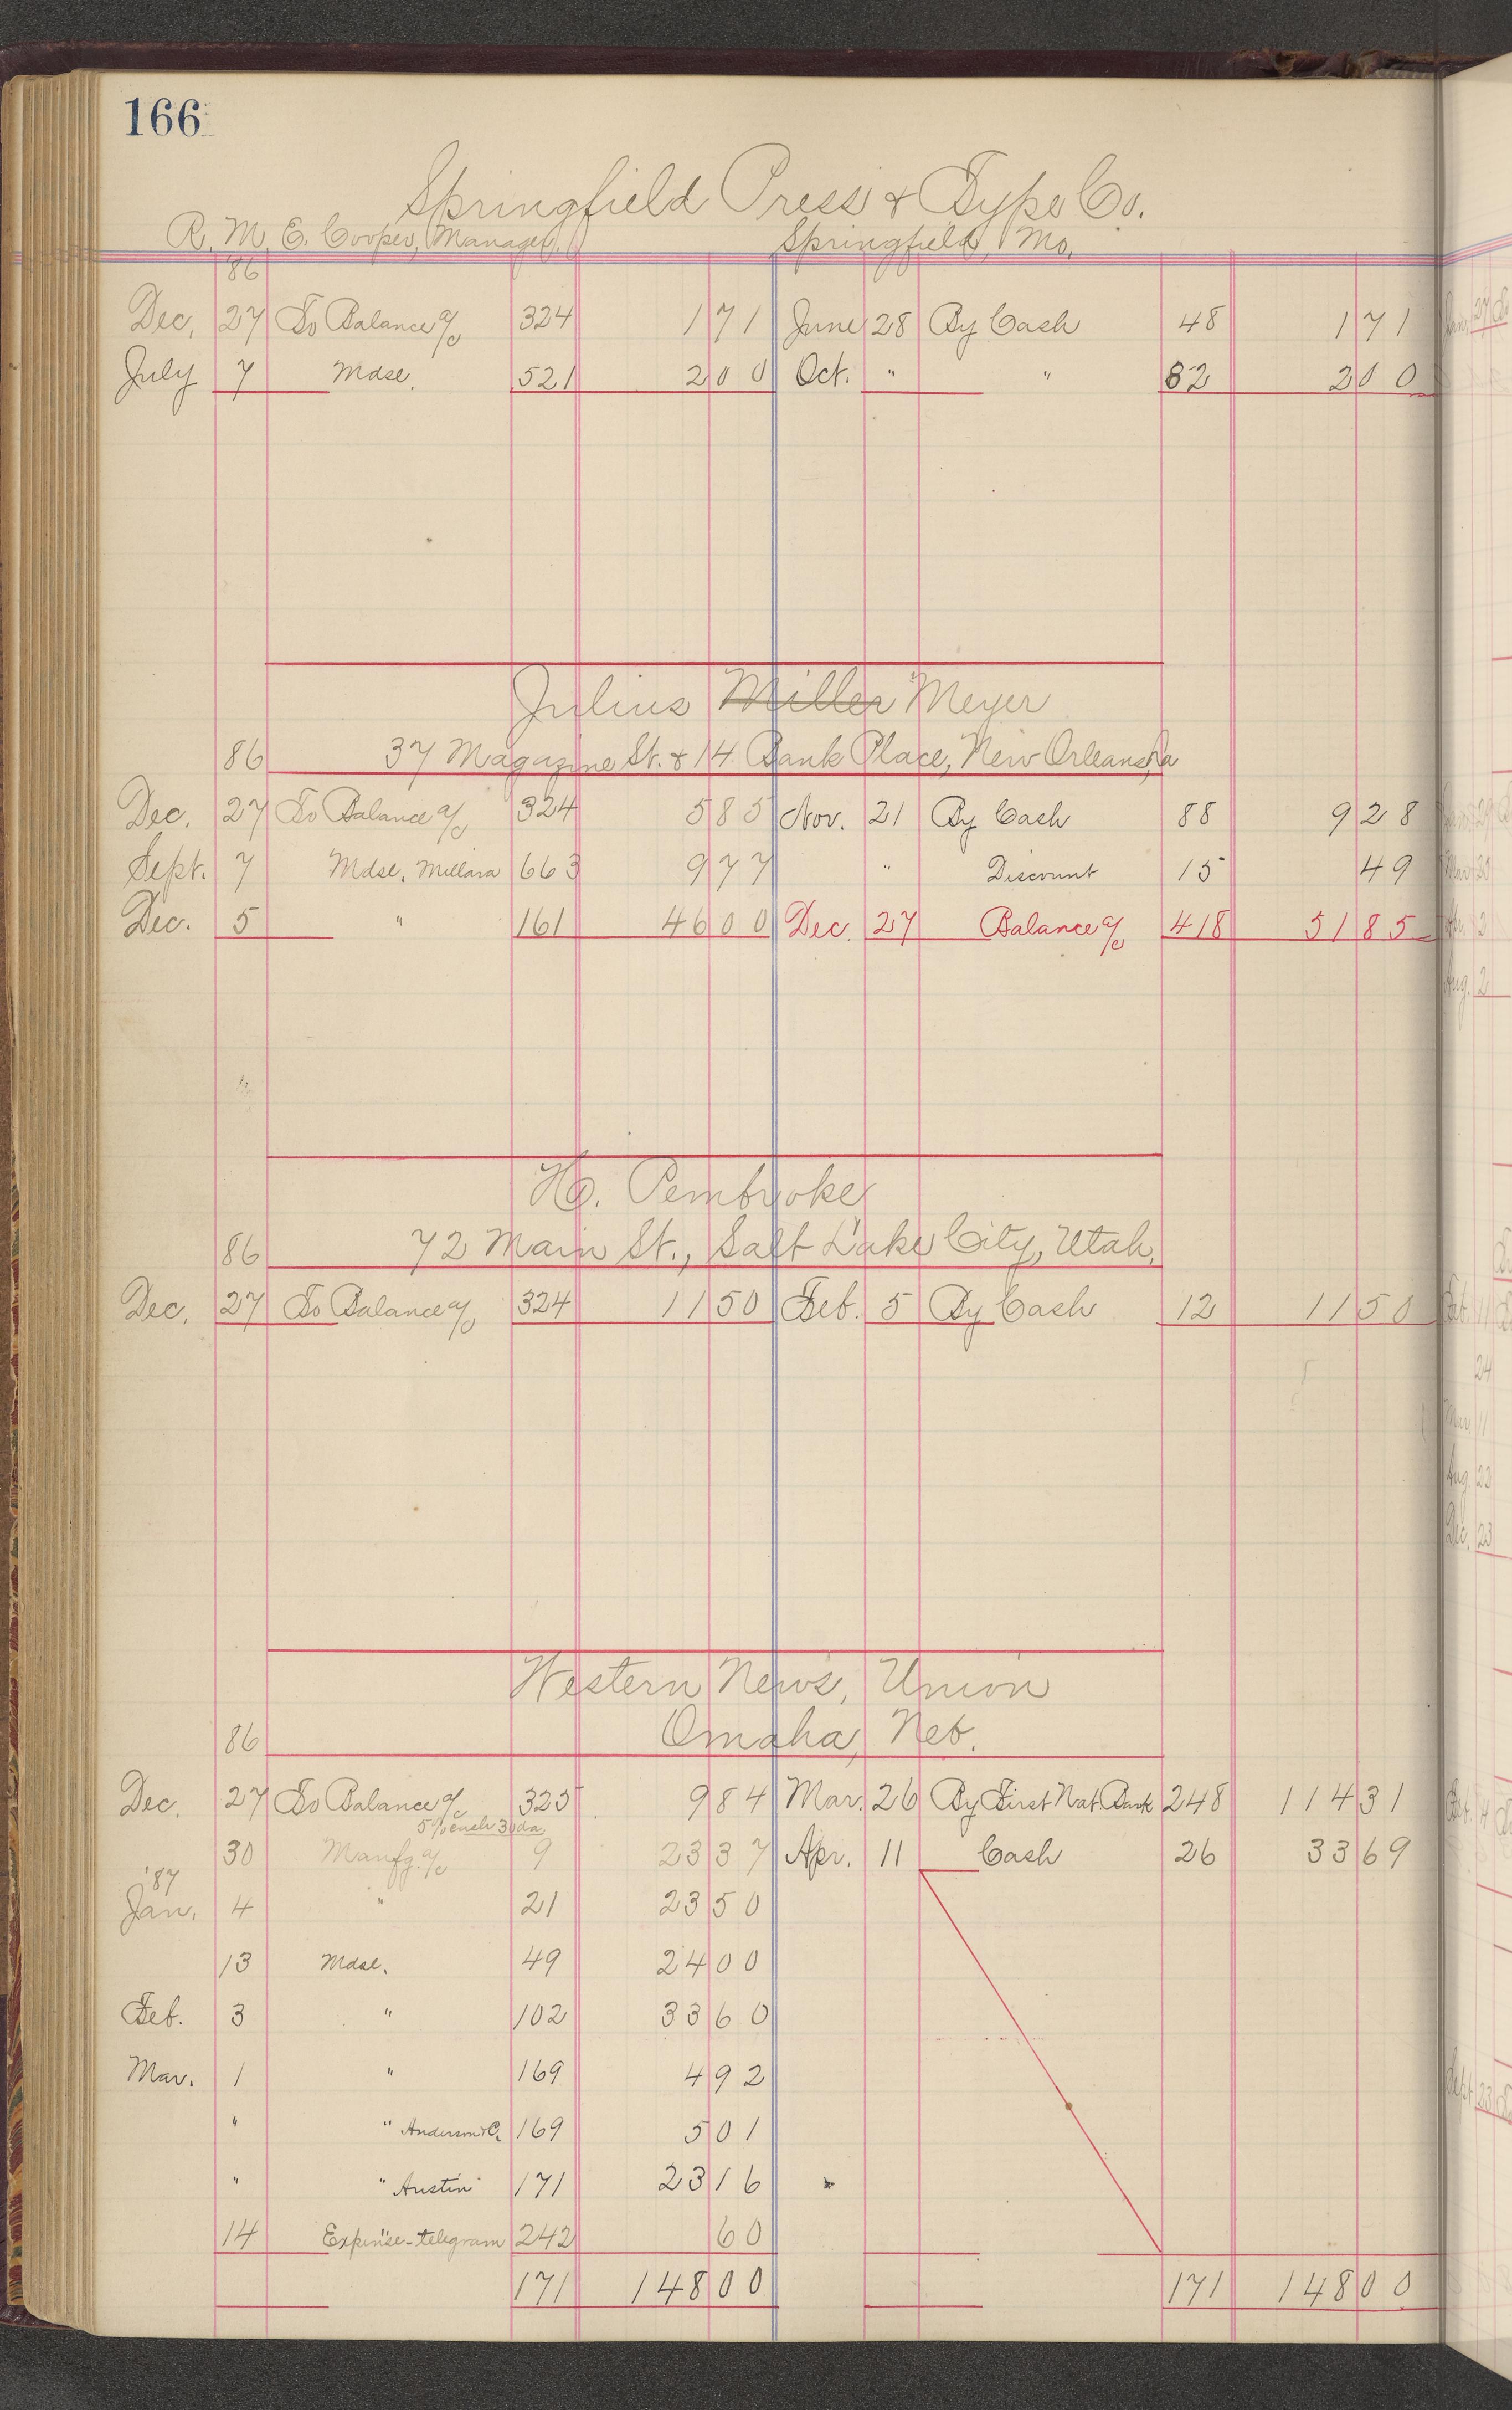 166
Springfield Press & Type Co.
R. M. E. Cooper, Manager, Springfield, Mo.
'86
Dec. 27 To Balance a/c 324 1 71 June 28 By Cash 48 1 71
July 7 Mdse. 521 2 00 Oct. " " 82 2 00
Julius Miller Meyer
86 37 Magazine St. & 14 Bank Place, New Orleans, La
Dec. 27 To Balance a/c 324 5 85 Nov. 21 By Cash 88 9 28
Sept. 7 Mdse. Millara 663 9 77 " Discount 15 49
Dec. 5 " 161 46 00 Dec. 27 Balance a/c 418 51 85
H. Pembroke
86 72 Main St., Salt Lake City, Utah.
Dec. 27 To Balance a/c 324 11 50 Feb. 5 By Cash 12 11 50
Western News, Union
86 Omaha, Neb.
Dec. 27 To Balance a/c 325 9 84 Mar. 26 By First Nat. Bank 248 114 31
5% each 30 da.
30 Manfg. a/c 9 23 37 Apr. 11 Cash 26 33 69
'87
Jan. 4 " 21 23 50
13 Mdse. 49 24 00
Feb. 3 " 102 33 60
Mar. 1 " 169 4 92
" " Anderson & C. 169 5 01
" " Austin 171 23 16
14 Expense-telegram 242 60
171 148 00 171 148 00